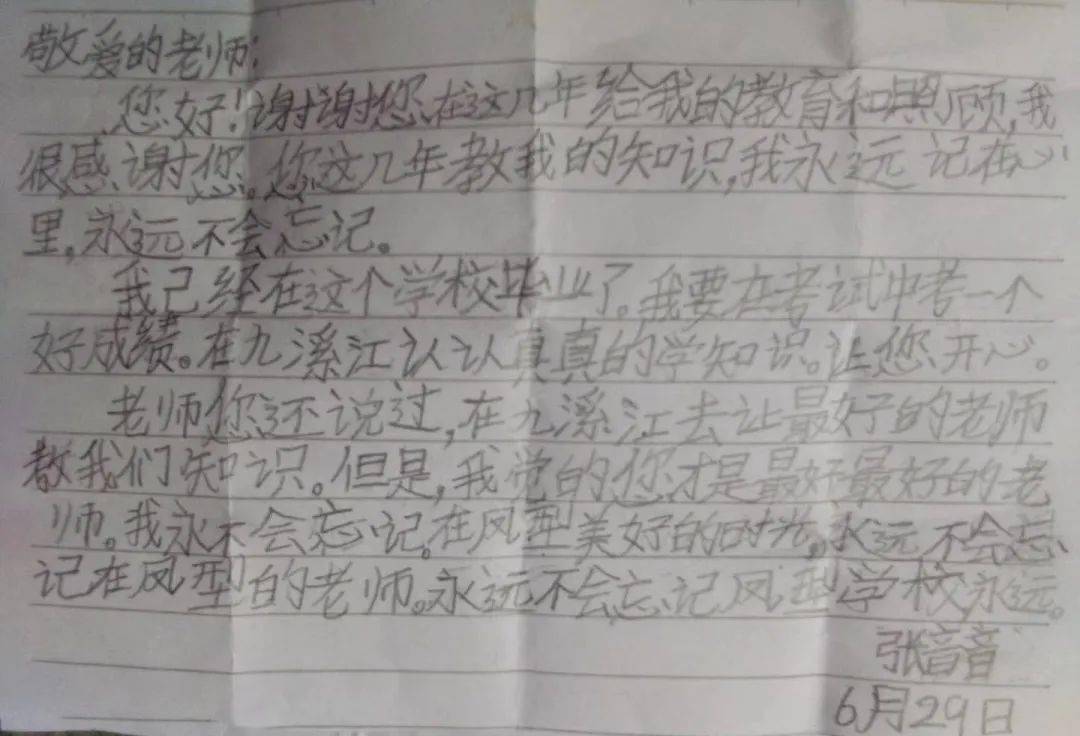 敬爱的老师:
您好!谢谢您在这几年给我的教育和照顾,我
很感谢您。您这几年教我的知识,我永远记在心
里,永远不会忘记。
我已经在这个学校毕业了。我要在考试中考一个
好成绩。在九溪江认认真真的学知识。让您开心。
老师您还说过,在九溪江去让最好的老师
教我们知识。但是,我觉的您才是最好最好的老
师。我永不会忘记在凤型美好的时光,永远不会忘
记在凤型的老师。永远不会忘记凤型学校,永远。
张音音
6月29日